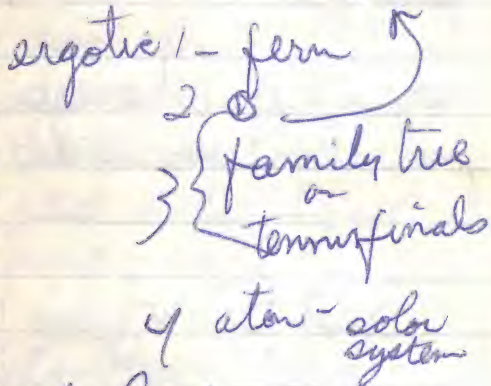 ergotic 1 - fern
2 ①
3 { family tree
or
tennis finals
4 atom - solar
system